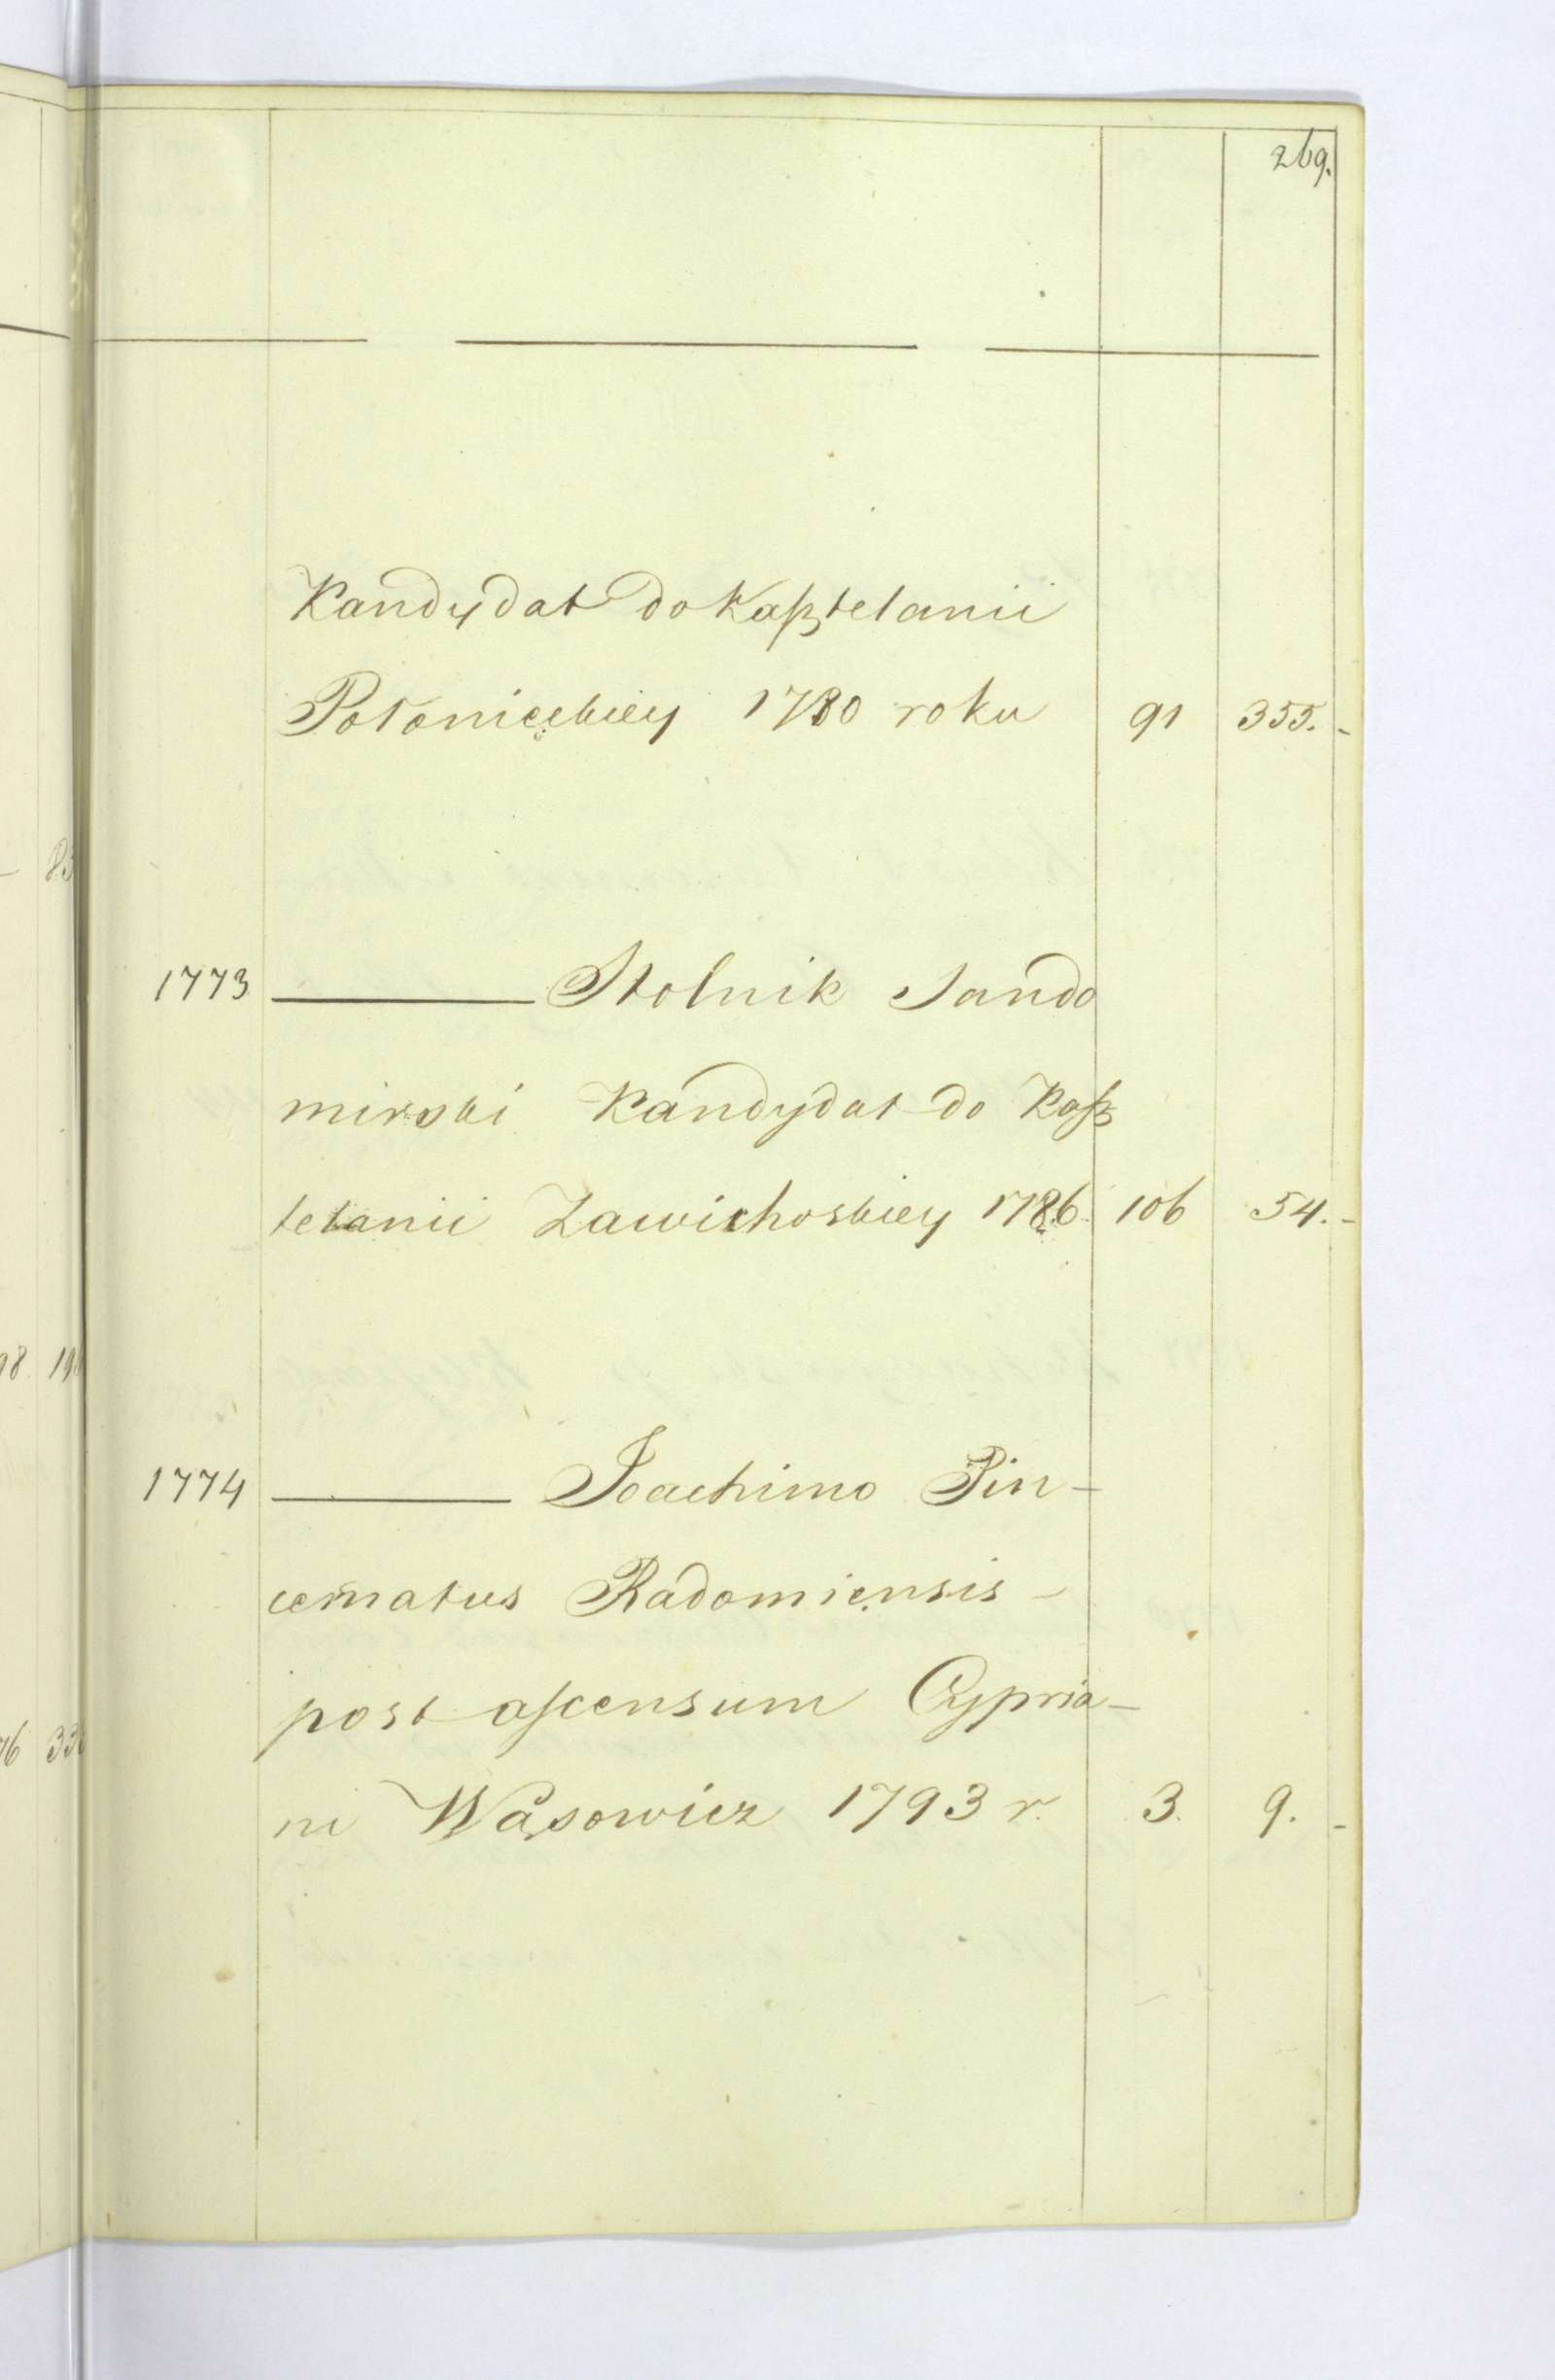 269.
Kandydat do Kasztelanii
Połonieckiey 1780 roku 91 355.-
1773 ——— Stolnik Sando
mirski Kandydat do Kasz
telanii Zawichoskiey 1786. 106 54.-
1774 ——— Joachimo Pin-
cernatus Radomiensis -
post ascensum Cypria-
ni Wąsowicz 1793 r. 3. 9.-